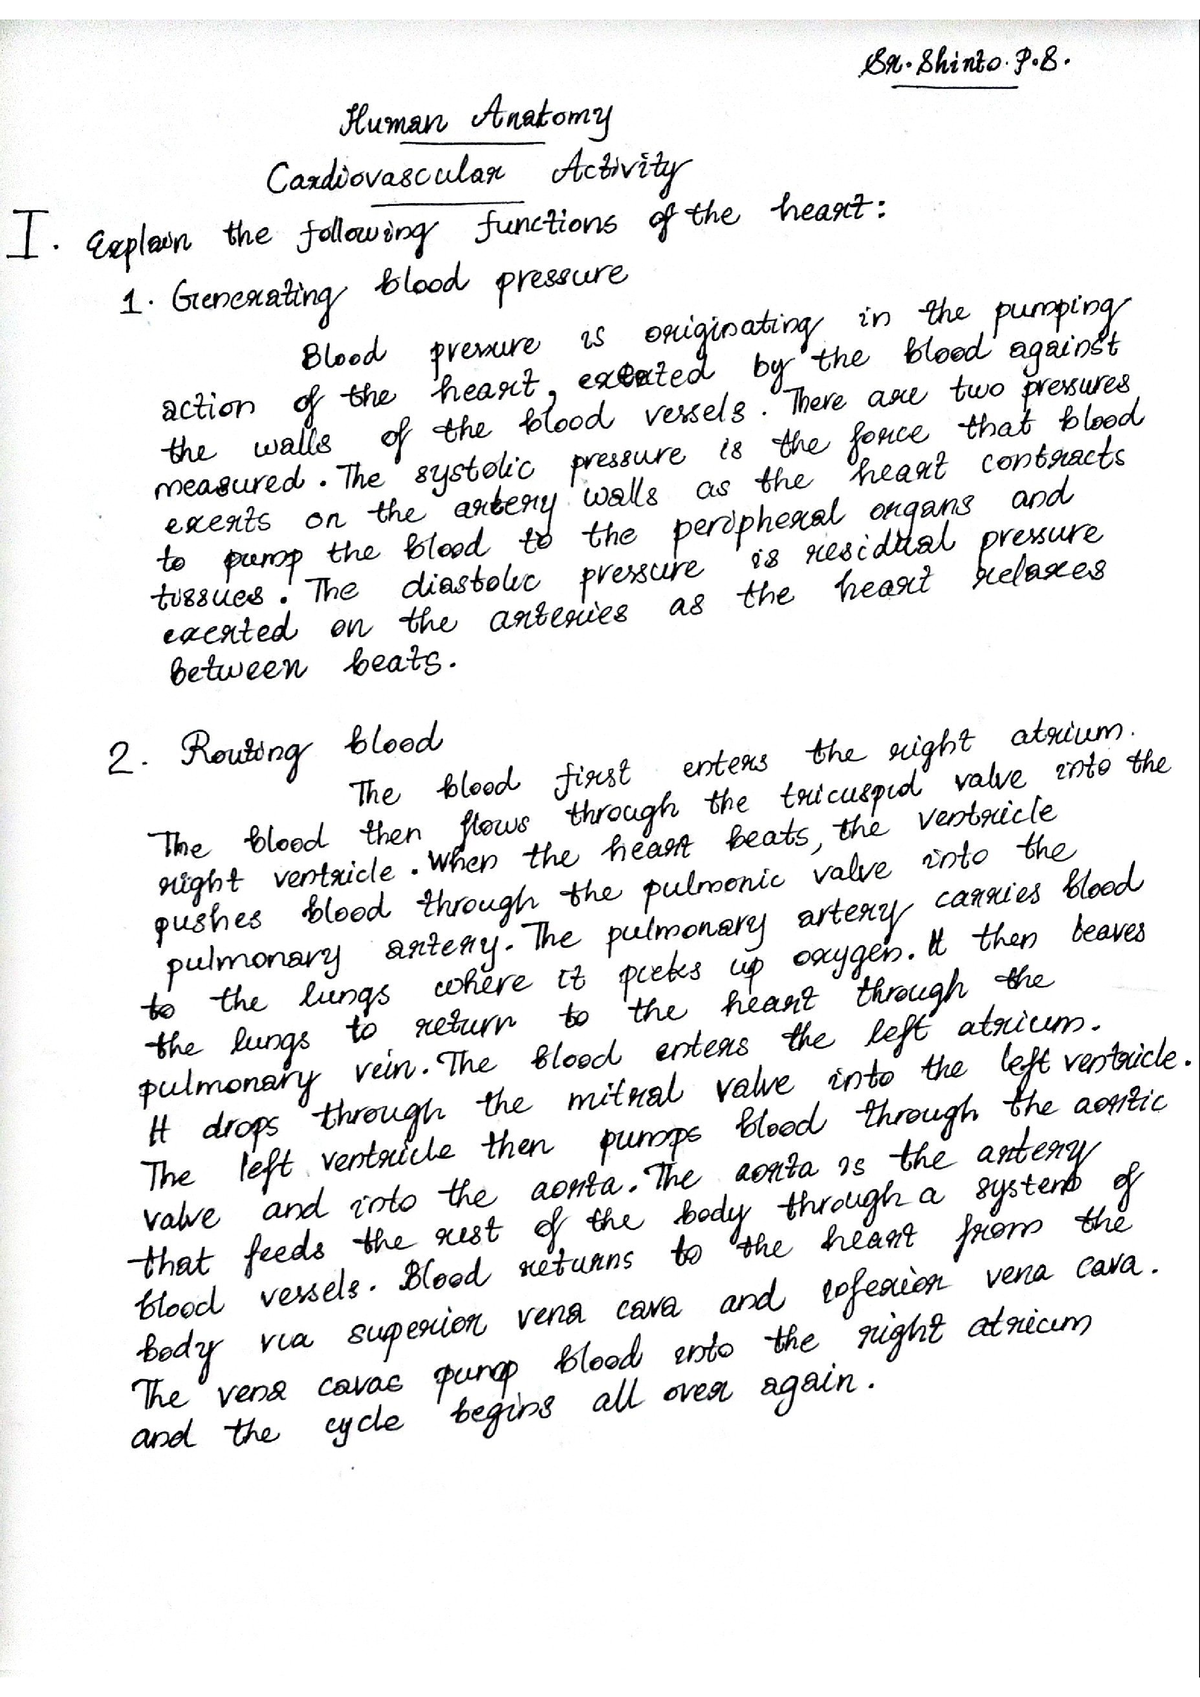 Sr. Shinto. P.S.
Human Anatomy
Cardiovascular Activity
I. Explain the following functions of the heart:
1. Generating blood pressure
Blood pressure is originating in the pumping
action of the heart, exerted by the blood against
the walls of the blood vessels. There are two pressures
measured. The systolic pressure is the force that blood
exerts on the artery walls as the heart contracts
to pump the blood to the peripheral organs and
tissues. The diastolic pressure is residual pressure
exerted on the arteries as the heart relaxes
between beats.
2. Routing blood
The blood first enters the right atrium.
The blood then flows through the tricuspid valve into the
right ventricle. When the heart beats, the ventricle
pushes blood through the pulmonic valve into the
pulmonary artery. The pulmonary artery carries blood
to the lungs where it picks up oxygen. It then leaves
the lungs to return to the heart through the
pulmonary vein. The blood enters the left atrium.
It drops through the mitral valve into the left ventricle.
The left ventricle then pumps blood through the aortic
valve and into the aorta. The aorta is the artery
that feeds the rest of the body through a system of
blood vessels. Blood returns to the heart from the
body via superior vena cava and inferior vena cava.
The vena cavae pump blood into the right atrium
and the cycle begins all over again.